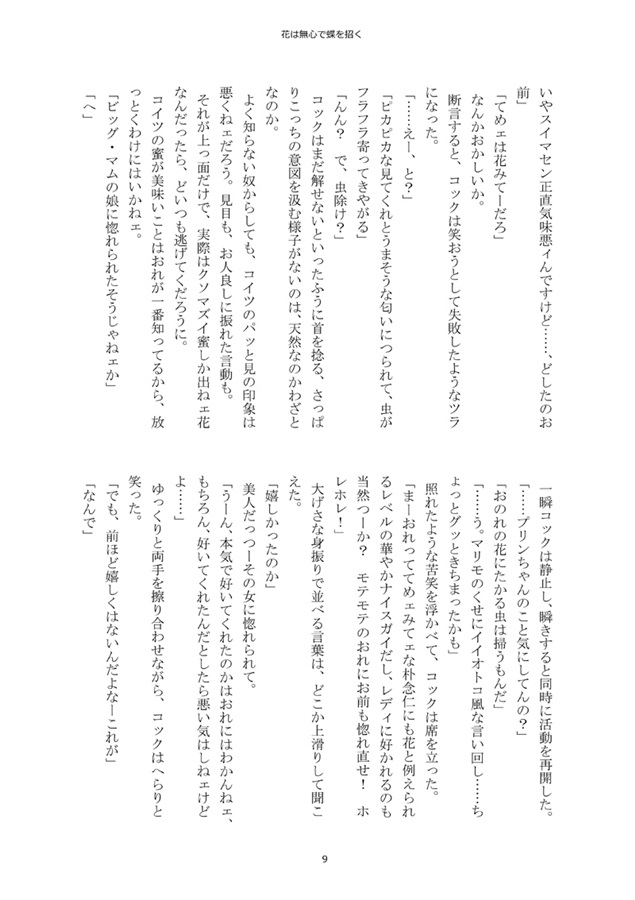 花は無心で蝶を招く
いやスイマセン正直気味悪ィんですけど……、どしたのお
前」
「てめェは花みてーだろ」
なんかおかしいか。
断言すると、コックは笑おうとして失敗したようなツラ
になった。
「……えー、と？」
「ピカピカな見てくれとうまそうな匂いにつられて、虫が
フラフラ寄ってきやがる」
「んん？　で、虫除け？」
コックはまだ解せないといったふうに首を捻る、さっぱ
りこっちの意図を汲む様子がないのは、天然なのかわざと
なのか。
よく知らない奴からしても、コイツのパッと見の印象は
悪くねェだろう。見目も、お人良しに振れた言動も。
それが上っ面だけで、実際はクソマズイ蜜しか出ねェ花
なんだったら、どいつも逃げてくだろうに。
コイツの蜜が美味いことはおれが一番知ってるから、放
っとくわけにはいかねェ。
「ビッグ・マムの娘に惚れられたそうじゃねェか」
「へ」
一瞬コックは静止し、瞬きすると同時に活動を再開した。
「……プリンちゃんのこと気にしてんの？」
「おのれの花にたかる虫は掃うもんだ」
「……う。マリモのくせにイイオトコ風な言い回し……ち
ょっとグッときちまったかも」
照れたような苦笑を浮かべて、コックは席を立った。
「まーおれってばてめェみてェな朴念仁にも花と例えられ
るレベルの華やかナイスガイだし、レディに好かれるのも
当然つーか？　モテモテのおれにお前も惚れ直せ！　ホ
レホレ！」
大げさな身振りで並べる言葉は、どこか上滑りして聞こ
えた。
「嬉しかったのか」
美人だっつーその女に惚れられて。
「うーん、本気で好いてくれたのかはおれにはわかんねェ、
もちろん、好いてくれたんだとしたら悪い気はしねェけど
よ……」
ゆっくりと両手を擦り合わせながら、コックはへらりと
笑った。
「でも、前ほど嬉しくはないんだよなーこれが」
「なんで」
9